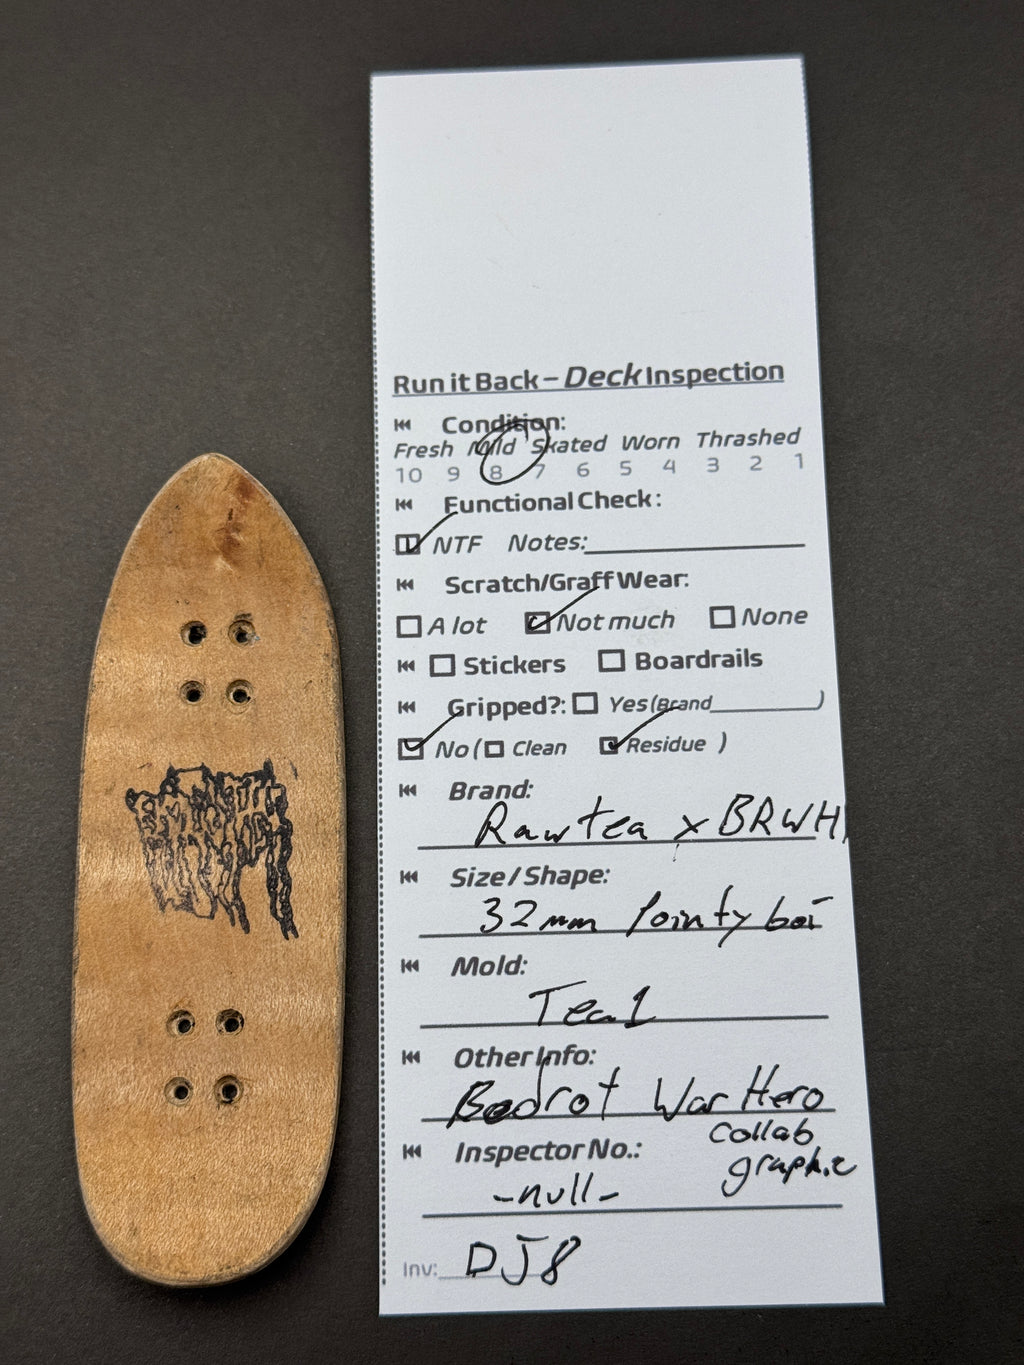 Run it Back – Deck Inspection
Condition:
Fresh Mild Skated Worn Thrashed
10 9 8 7 6 5 4 3 2 1
Functional Check:
NTF Notes:
Scratch/Graff Wear:
A lot Not much None
Stickers Boardrails
Gripped?: Yes (Brand )
No ( Clean Residue )
Brand:
Rawtea x BRWH
Size / Shape:
32mm Pointy boi
Mold:
Tea 1
Other Info:
Bedrot War Hero
collab
graphic
Inspector No.:
-null-
Inv: DJ8